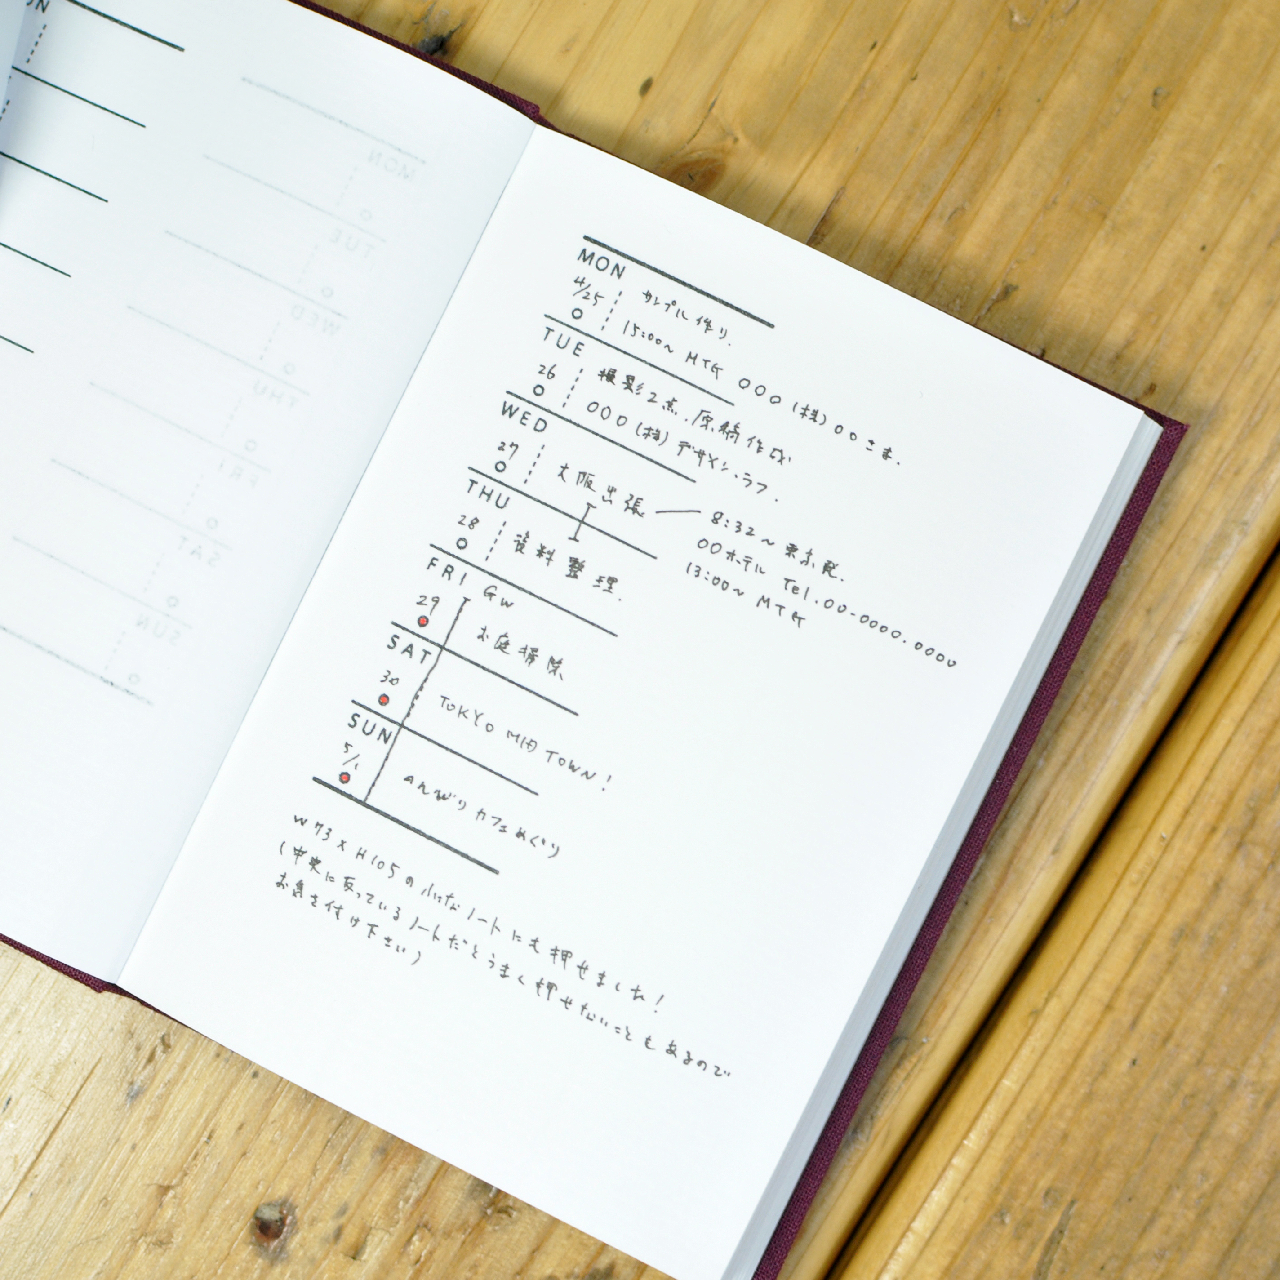 MON
4/25
サンプル作り.
15:00~ MTG 〇〇〇(株)〇〇さま.
TUE
26
撮影2点.原稿作成
〇〇〇(株)デザイン.ラフ.
WED
27
大阪出張 — 8:32~東京発.
〇〇ホテル Tel.00-0000.0000
13:00~ MTG
THU
28
資料整理.
FRI
29
GW
お庭掃除
SAT
30
TOKYO MID TOWN!
SUN
5/1
のんびりカフェめぐり
W73×H105の小さなノートにも押せました!
(中央に反っているノートだとうまく押せないこともあるので
お気を付け下さい)
MON
TUE
WED
THU
FRI
SAT
SUN